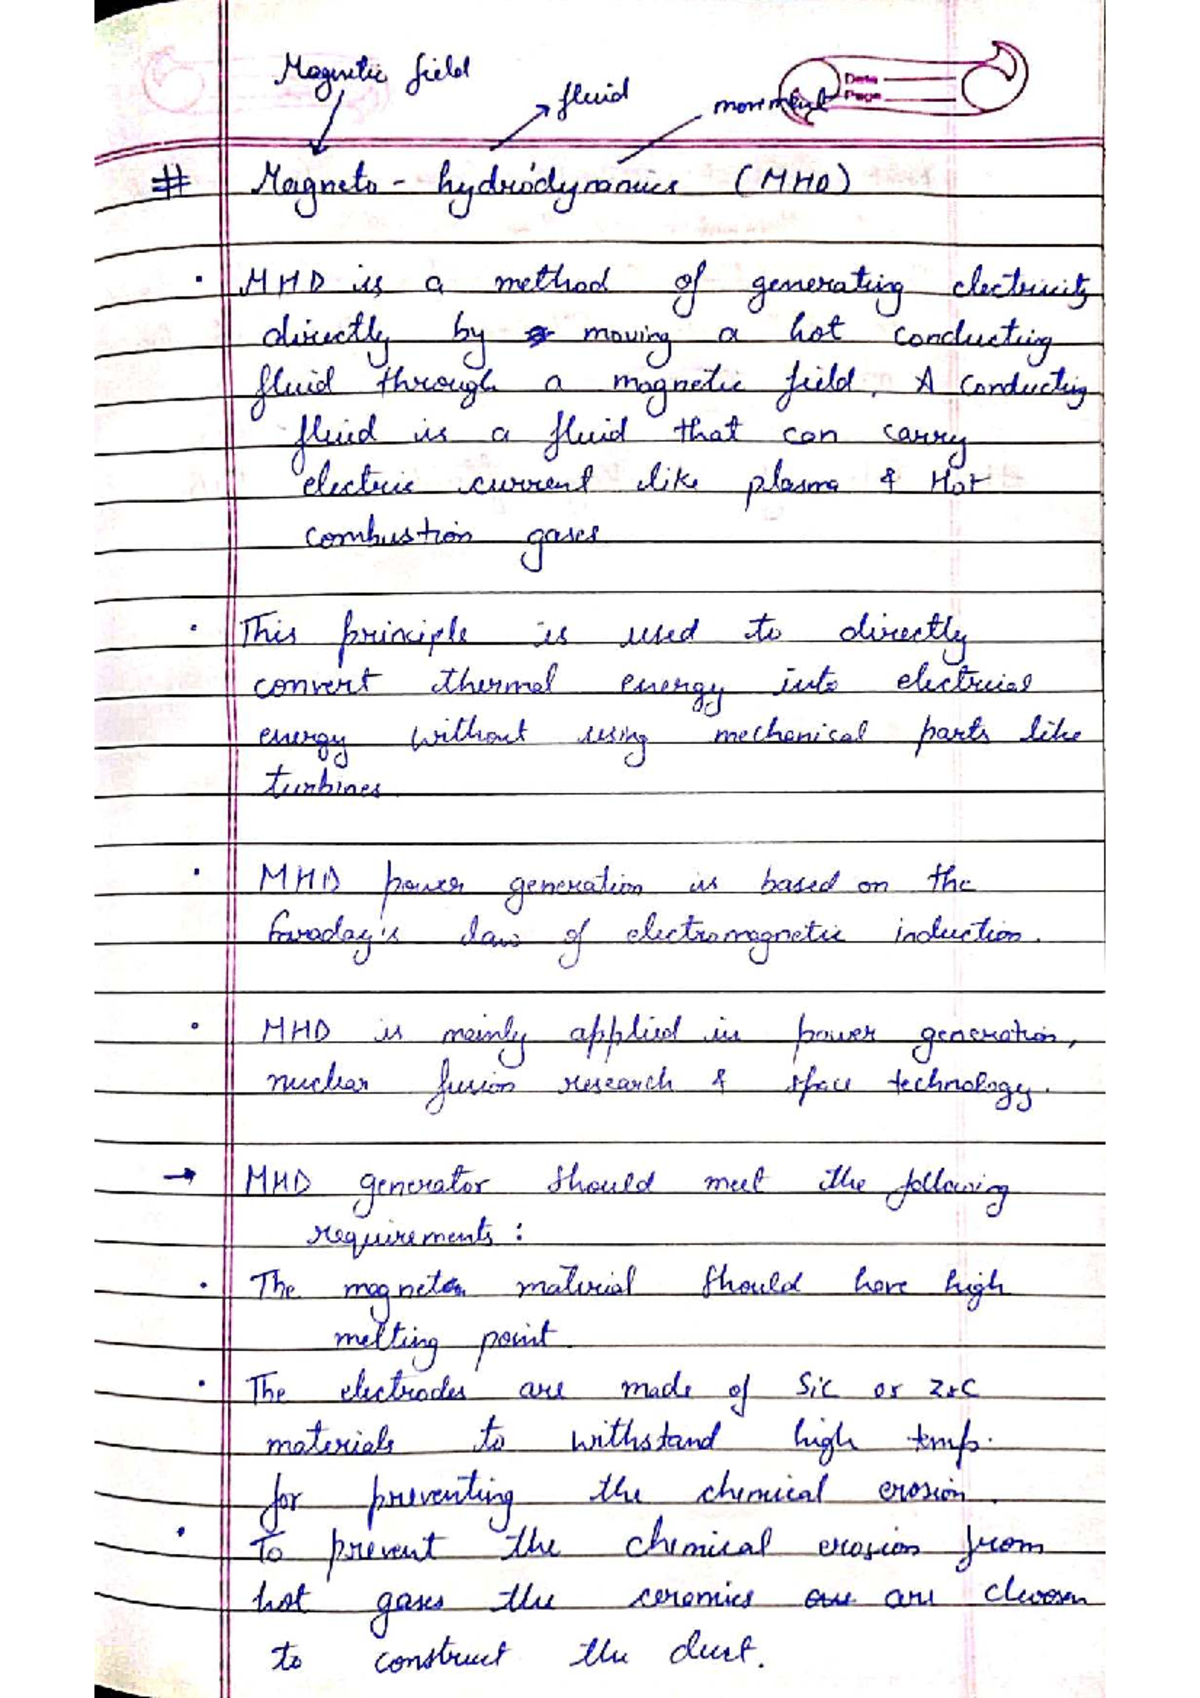 Magnetic field
fluid
movement
Date
Page
# Magneto - hydrodynamics (MHD)
· MHD is a method of generating electricity
directly by moving a hot conducting
fluid through a magnetic field. A conducting
fluid is a fluid that can carry
electric current like plasma & Hot
combustion gases
· This principle is used to directly
convert thermal energy into electrical
energy without using mechanical parts like
turbines
· MHD power generation is based on the
Faraday's law of electromagnetic induction.
· MHD is mainly applied in power generation,
nuclear fusion research & space technology.
→ MHD generator should meet the following
requirements :
· The magnet material should have high
melting point.
· The electrodes are made of SiC or ZrC
materials to withstand high temp.
for preventing the chemical erosion.
· To prevent the chemical erosion from
hot gases the ceramics are are choosen
to construct the duct.